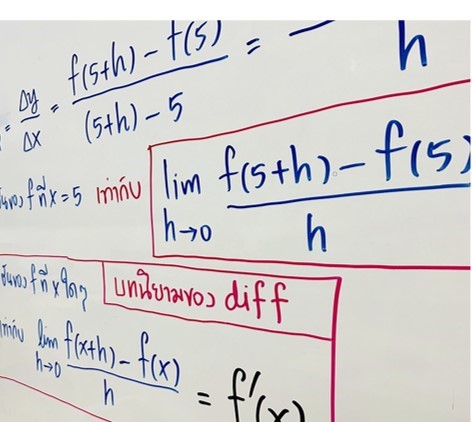 = Δy/Δx = f(5+h) - f(5)/(5+h) - 5 = /h
f ที่ x = 5 เท่ากับ lim h→0 f(5+h) - f(5)/h
f ที่ x ใดๆ บทนิยามของ diff
เท่ากับ lim h→0 f(x+h) - f(x)/h = f'(x)